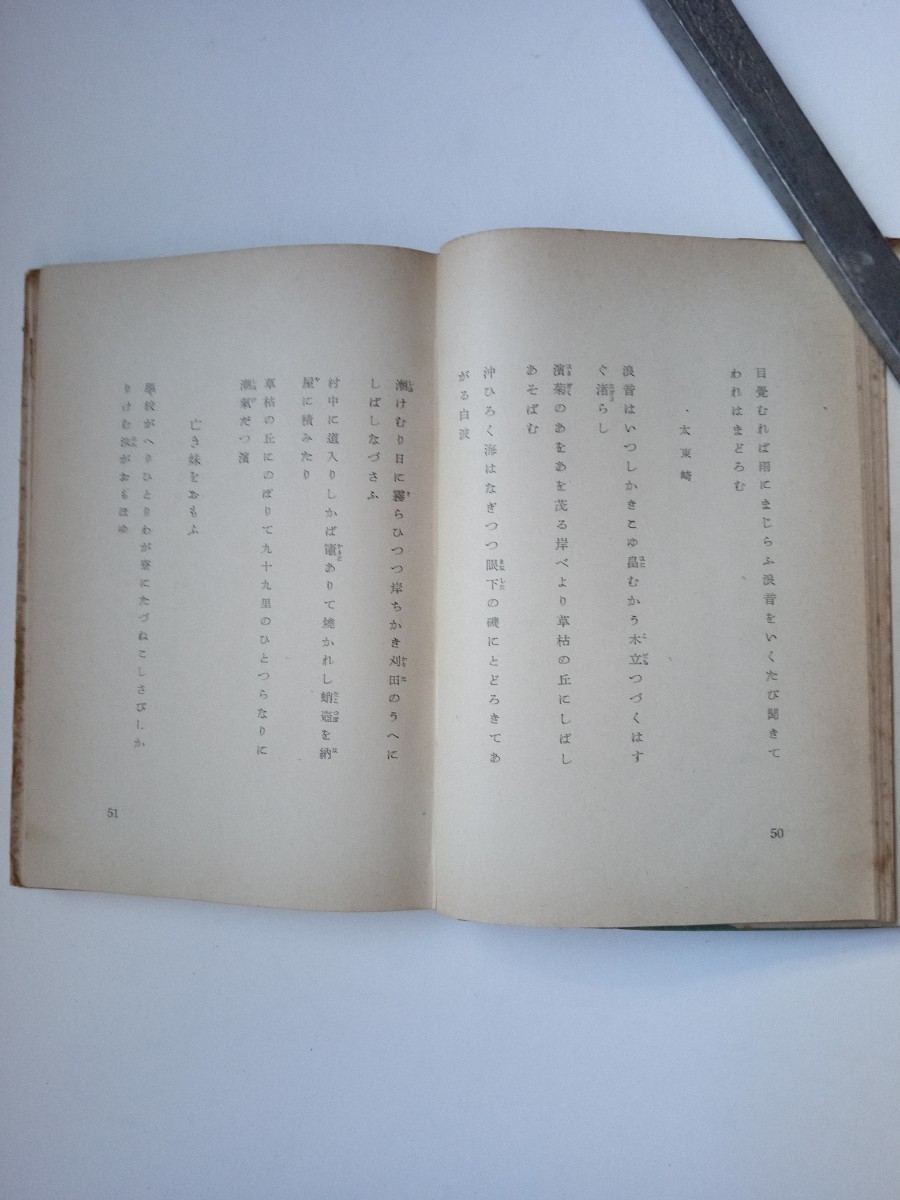 目覺むれば雨にまじらふ浪音をいくたび聞きて
われはまどろむ
太東崎
浪音はいつしかきこゆ畠むかう木立つづくはす
ぐ渚らし
濱菊のあをあを茂る岸べより草枯の丘にしばし
あそばむ
沖ひろく海はなぎつつ眼下の磯にとどろきてあ
がる白波
50
潮けむり日に霧らひつつ岸ちかき刈田のうへに
しばしなづさふ
村中に道入りしかば竈ありて燒かれし蛸壺を納
屋に積みたり
草枯の丘にのぼりて九十九里のひとつらなりに
潮氣だつ濱
亡き妹をおもふ
學校がへりひとりわが寮にたづねこしさびしか
りけむ汝がおもほゆ
51